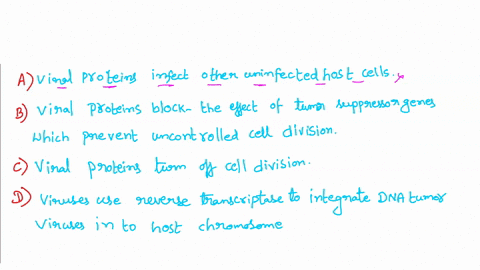 A) Viral proteins infect other uninfected host cells.
B) Viral proteins block the effect of tumor suppressor genes
which prevent uncontrolled cell division.
C) Viral proteins turn off cell division.
D) Viruses use reverse transcriptase to integrate DNA tumor
Viruses in to host chromosome